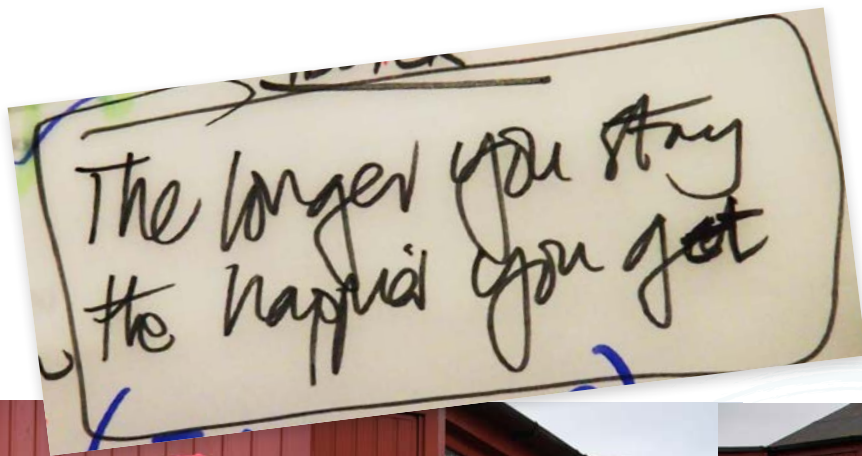 The longer you stay
the happier you get